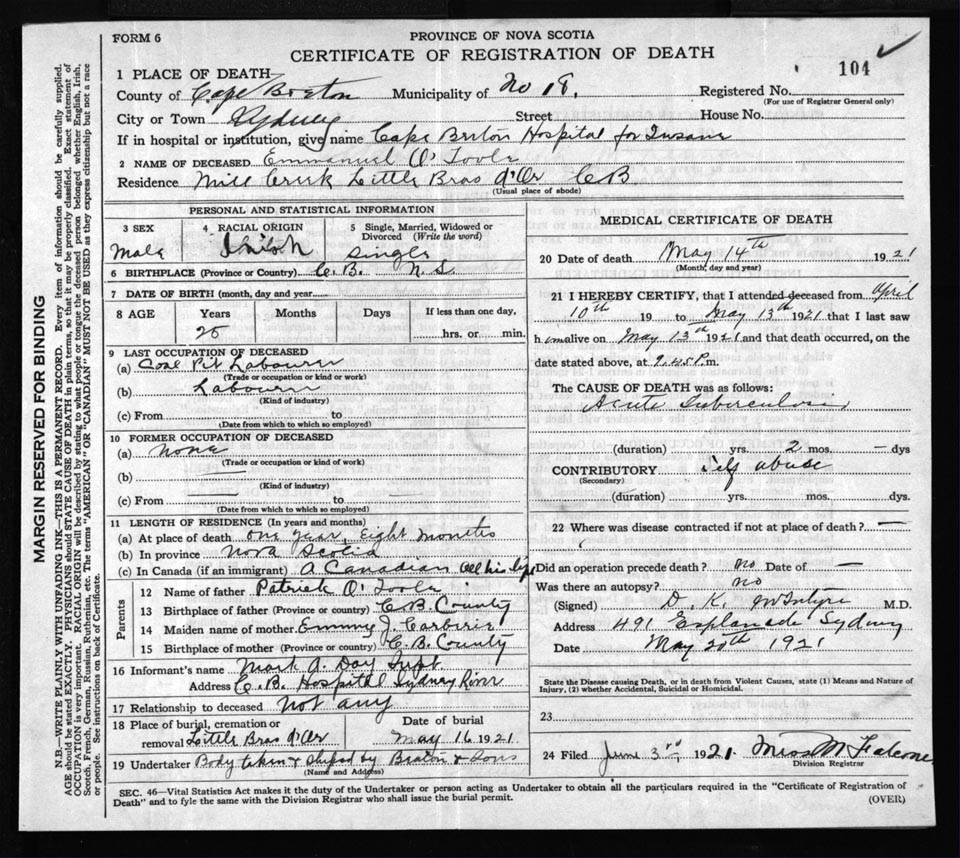 FORM 6
PROVINCE OF NOVA SCOTIA
CERTIFICATE OF REGISTRATION OF DEATH
104
1 PLACE OF DEATH
County of Cape Breton Municipality of No 18. Registered No.
(For use of Registrar General only)
City or Town Sydney Street House No.
If in hospital or institution, give name Cape Breton Hospital for Insane
2 NAME OF DECEASED Emmanuel O'Toole
Residence Mill Creek Little Bras d'Or CB
(Usual place of abode)
PERSONAL AND STATISTICAL INFORMATION
3 SEX Male
4 RACIAL ORIGIN
5 Single, Married, Widowed or Divorced (Write the word) Single
6 BIRTHPLACE (Province or Country) C.B. N.S.
7 DATE OF BIRTH (month, day and year)
8 AGE Years Months Days If less than one day,
25 hrs. or min.
9 LAST OCCUPATION OF DECEASED
(a) Coal Pit Labourer
(Trade or occupation or kind or work)
(b) Labourer
(Kind of industry)
(c) From to
(Date from which to which so employed)
10 FORMER OCCUPATION OF DECEASED
(a) none
(Trade or occupation or kind of work)
(b)
(Kind of industry)
(c) From to
(Date from which to which so employed)
11 LENGTH OF RESIDENCE (In years and months)
(a) At place of death one year, eight months
(b) In province Nova Scotia
(c) In Canada (if an immigrant) A Canadian all his life
Parents
12 Name of father Patrick O'Toole
13 Birthplace of father (Province or country) C B County
14 Maiden name of mother Emmy J.
15 Birthplace of mother (Province or country) C.B. County
16 Informant's name Mark A. Day Supt
Address C.B. Hospital Sydney River
17 Relationship to deceased not any
18 Place of burial, cremation or removal Little Bras d'Or
Date of burial May 16 1921.
19 Undertaker Body taken & shiped by Beaton & Sons
(Name and Address)
MEDICAL CERTIFICATE OF DEATH
20 Date of death May 14th 1921
(Month, day and year)
21 I HEREBY CERTIFY, that I attended deceased from April
10th 19 to May 13th 1921 that I last saw
h im alive on May 13th 1921 and that death occurred, on the
date stated above, at 2.45 P. m.
The CAUSE OF DEATH was as follows:
Acute Tuberculosis
(duration) yrs. 2 mos. — dys
CONTRIBUTORY Self abuse
(Secondary)
(duration) yrs. mos. dys.
22 Where was disease contracted if not at place of death? —
Did an operation precede death? no Date of —
Was there an autopsy? no
(Signed) D. K. McIntyre M.D.
Address 491 Esplanade Sydney
Date May 20th 1921
State the Disease causing Death, or in death from Violent Causes, state (1) Means and Nature of
Injury, (2) whether Accidental, Suicidal or Homicidal.
23
24 Filed June 3rd, 1921. Miss M Falcone
Division Registrar
SEC. 46—Vital Statistics Act makes it the duty of the Undertaker or person acting as Undertaker to obtain all the particulars required in the "Certificate of Registration of
Death" and to fyle the same with the Division Registrar who shall issue the burial permit.
(OVER)
MARGIN RESERVED FOR BINDING
N.B.—WRITE PLAINLY WITH UNFADING INK—THIS IS A PERMANENT RECORD. Every item of information should be carefully supplied.
AGE should be stated EXACTLY. PHYSICIANS should STATE CAUSE OF DEATH in plain terms, so that it may be properly classified. Exact statement of
OCCUPATION is very important. RACIAL ORIGIN will be described by stating to what people or tongue the deceased person belonged whether English, Irish,
Scotch, French, German, Russian, Ruthenian, etc. The terms "AMERICAN" OR "CANADIAN" MUST NOT BE USED as they express citizenship but not a race
or people. See instructions on back of Certificate.